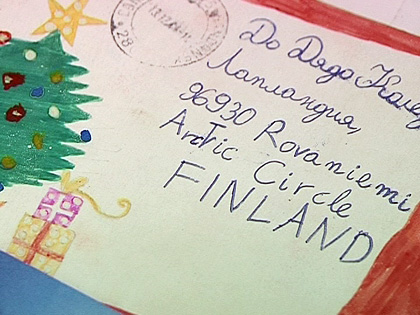 До Дядо Колед
Лапландия,
96930 Rovaniemi
Arctic Circle
FINLAND